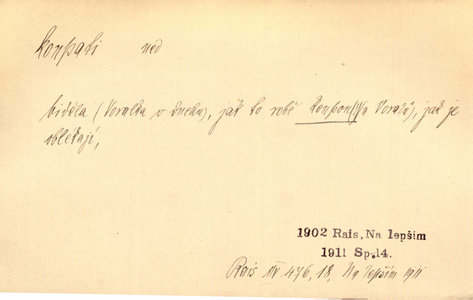 koupati ned
viděla (Voralka v duchu), jak to robě koupou (p. Voralů), jak je
oblékají,
1902 Rais, Na lepším
1911 Sp. 14.
Rais XIV 476, 18, Na lepším 1911